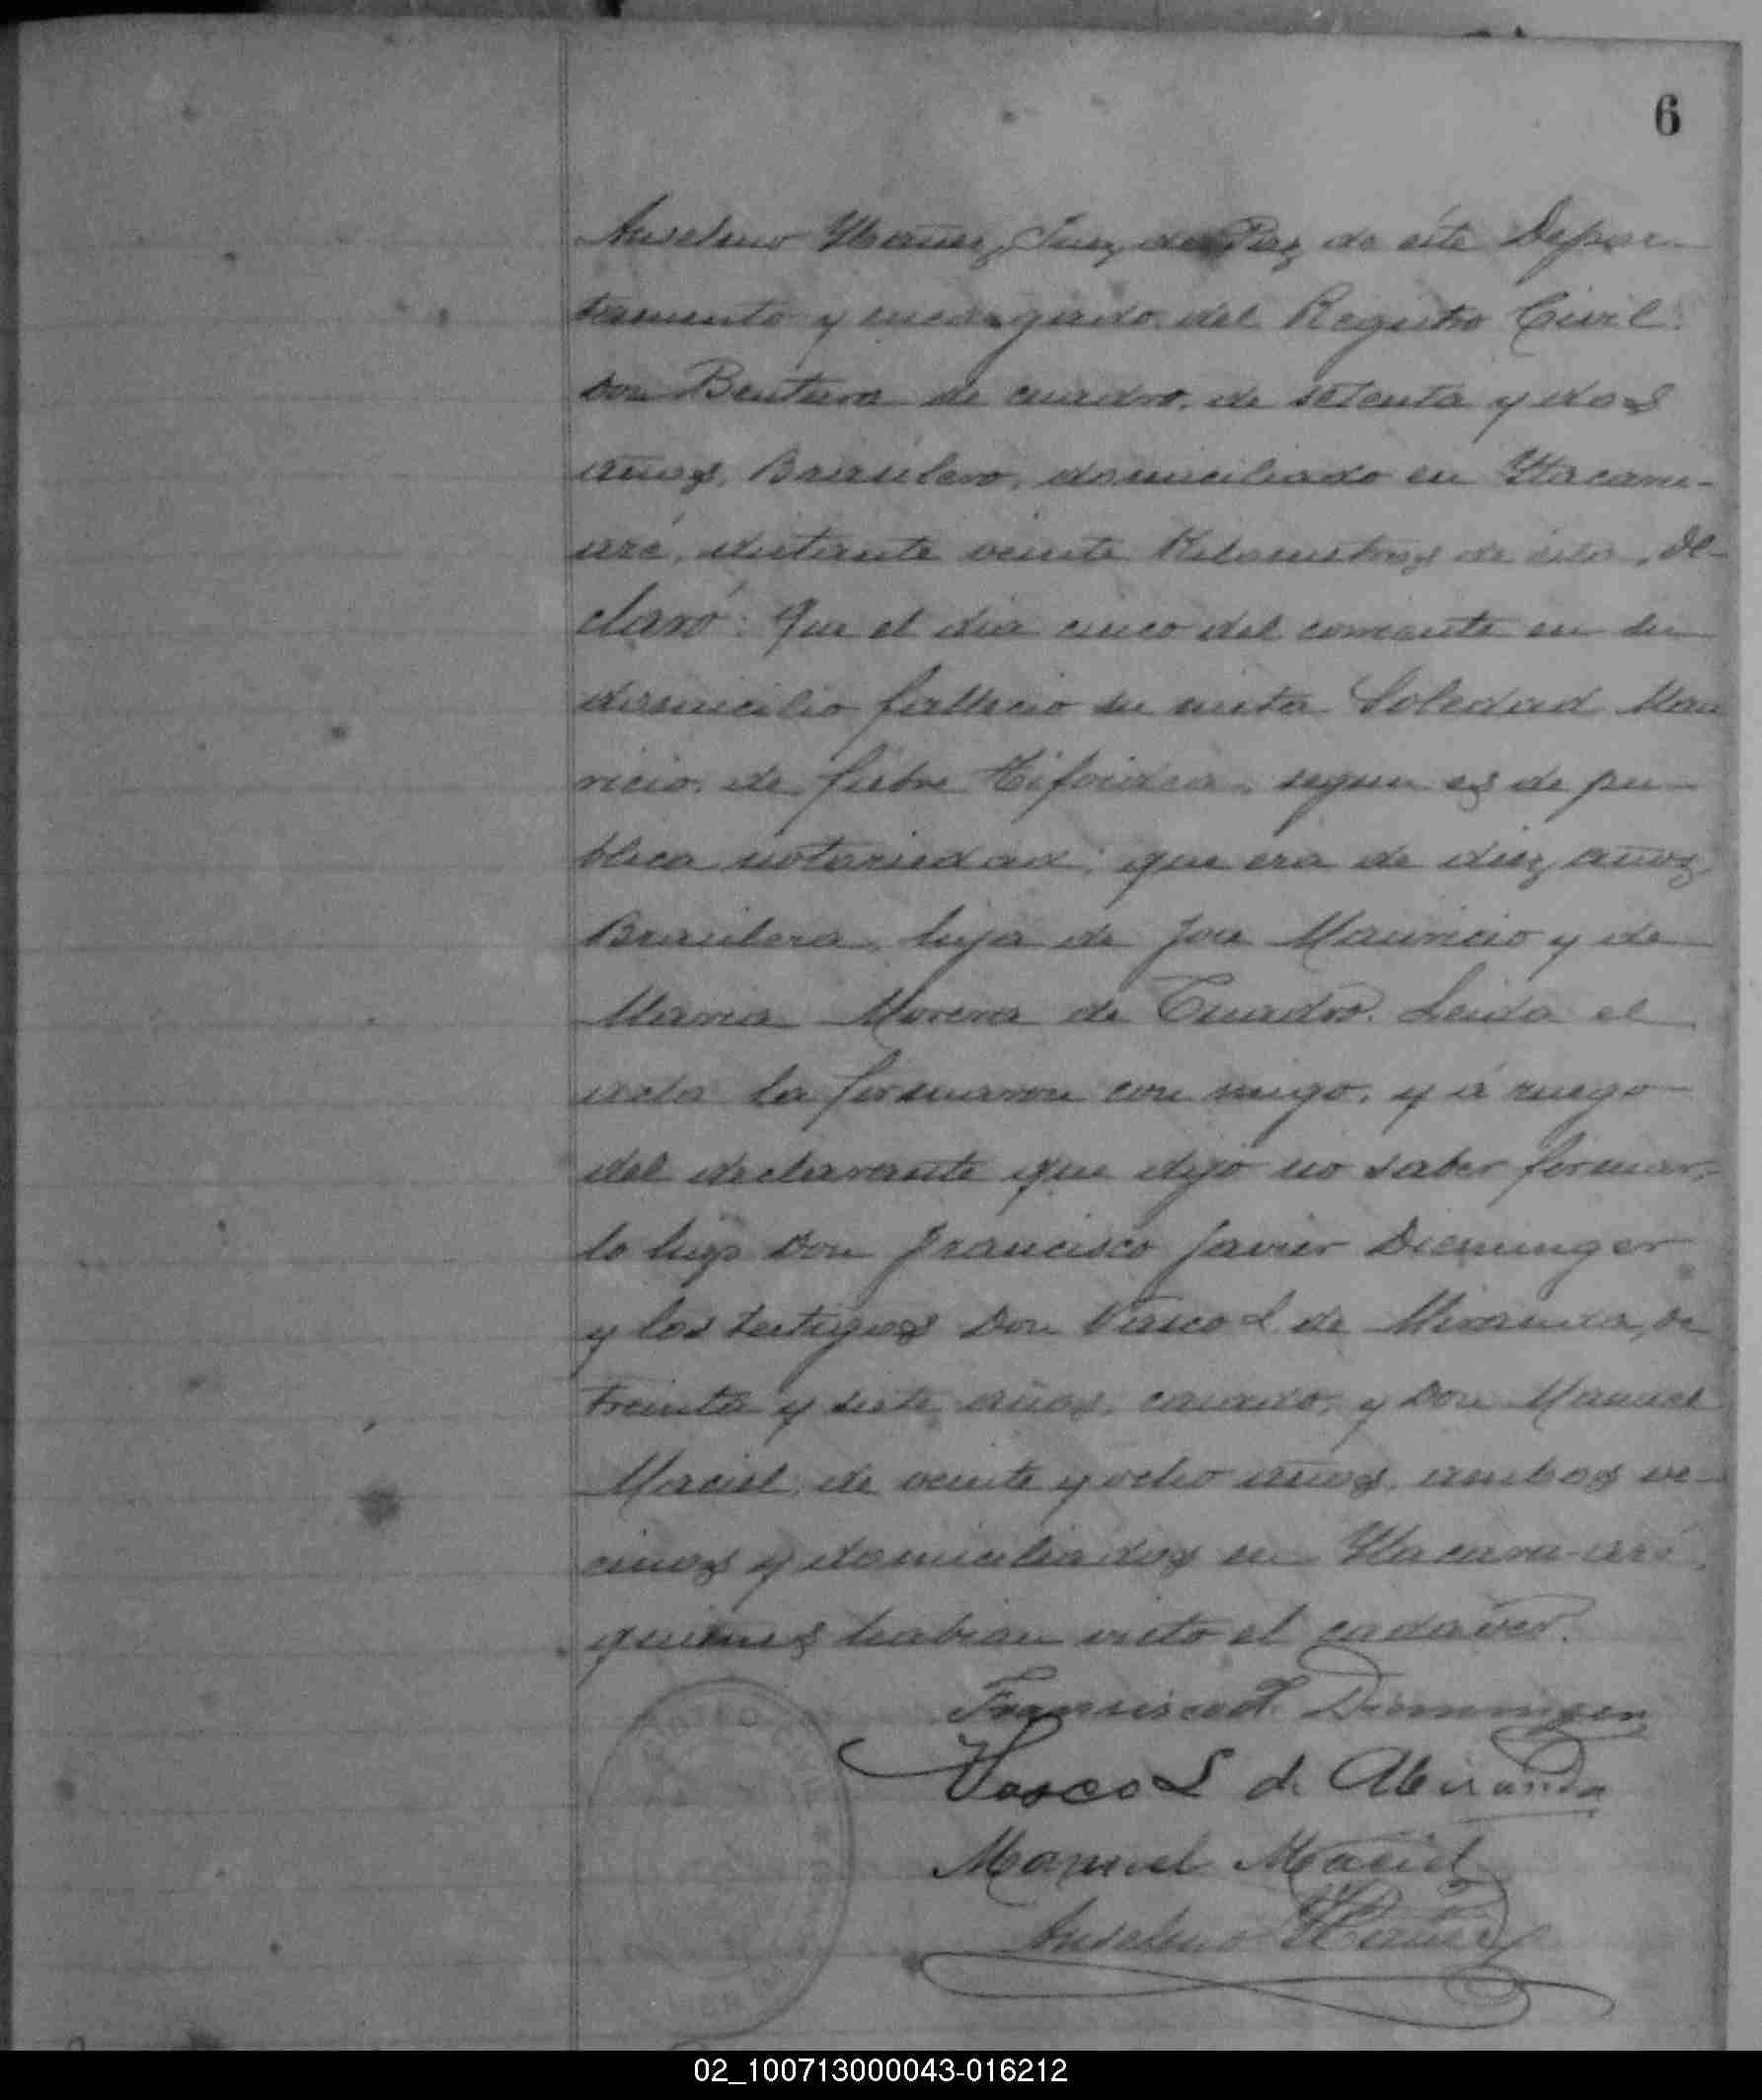 6
Anselmo Ybañez, Juez de Paz de éste Depar-
tamento y encargado del Registro Civil:
Don Bentura de cuadro, de setenta y dos
años, Brasilero, domiciliado en Ytacaru-
aré, distante veinte Kilometros de esta, De-
claró: Que el dia cinco del corriente en su
domicilio fallecio su nieta Soledad Mau
ricio, de fiebre tifoidea, segun es de pu-
blica notoriedad; que era de diez años,
Brasilera, hija de José Mauricio y de
Maria Morena de Cuadro. Leida el
acta la firmaron con migo, y á ruego
del declarante que dijo no saber firmar,
lo hizo Don Francisco Javier Dieminger
y los testigos Don Vasco L. de Miranda, de
treinta y siete años, casado, y Don Manuel
Maciel, de veinte y ocho años, ambos ve-
cinos y domiciliados en Ytacaru-aré,
quienes habian visto el cadaver.
Francisco J. Dieminger
Vasco L de Miranda
Manuel Maciel
Anselmo Ybañez
02_100713000043-016212